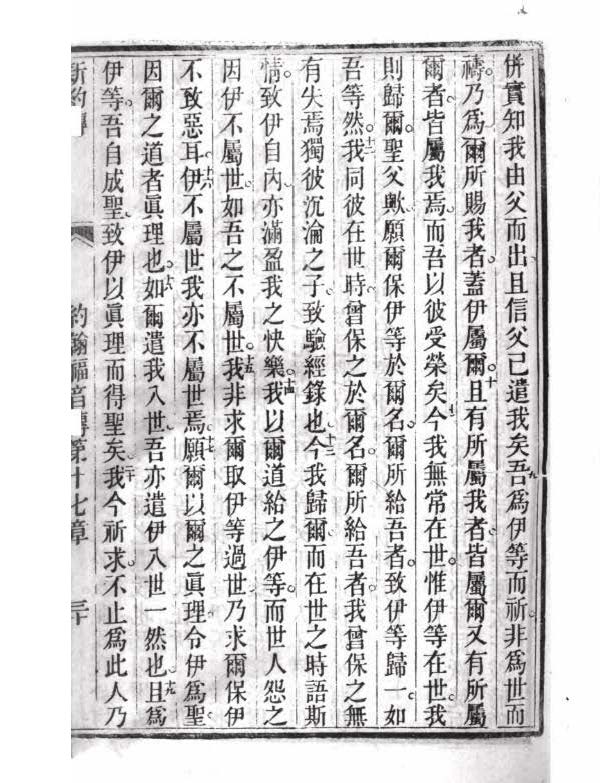 併實知我由父而出且信父已遣我矣九吾爲伊等而祈非爲世而
禱乃爲爾所賜我者蓋伊屬爾十且有所屬我者皆屬爾又有所屬
爾者皆屬我焉而吾以彼受榮矣十一今我無常在世惟伊等在世我
則歸爾聖父歟願爾保伊等於爾名爾所給吾者致伊等歸一如
吾等然十二我同彼在世時曾保之於爾名爾所給吾者我曾保之無
有失焉獨彼沉淪之子致驗經錄也十三今我歸爾而在世之時語斯
情致伊自內亦滿盈我之快樂十四我以爾道給之伊等而世人怨之
因伊不屬世如吾之不屬世十五我非求爾取伊等過世乃求爾保伊
不致惡耳十六伊不屬世我亦不屬世焉十七願爾以爾之眞理令伊爲聖
因爾之道者眞理也十八如爾遣我入世吾亦遣伊入世一然也十九且爲
伊等吾自成聖致伊以眞理而得聖矣二十我今祈求不止爲此人乃
新約 約翰福音傳第十七章